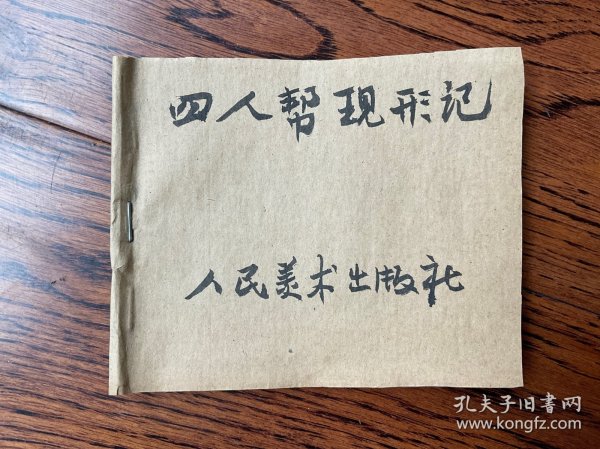 四人帮现形记
人民美术出版社
孔夫子旧書网
www.kongfz.com